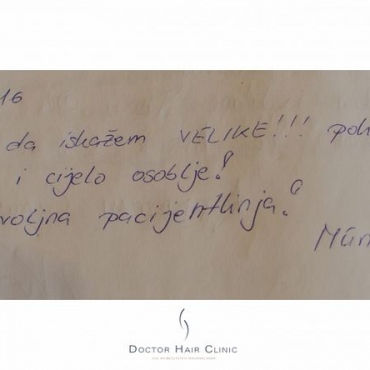 16
da iskažem VELIKE!!! poh
i cijelo osoblje!
voljna pacijentinja!
DOCTOR HAIR CLINIC